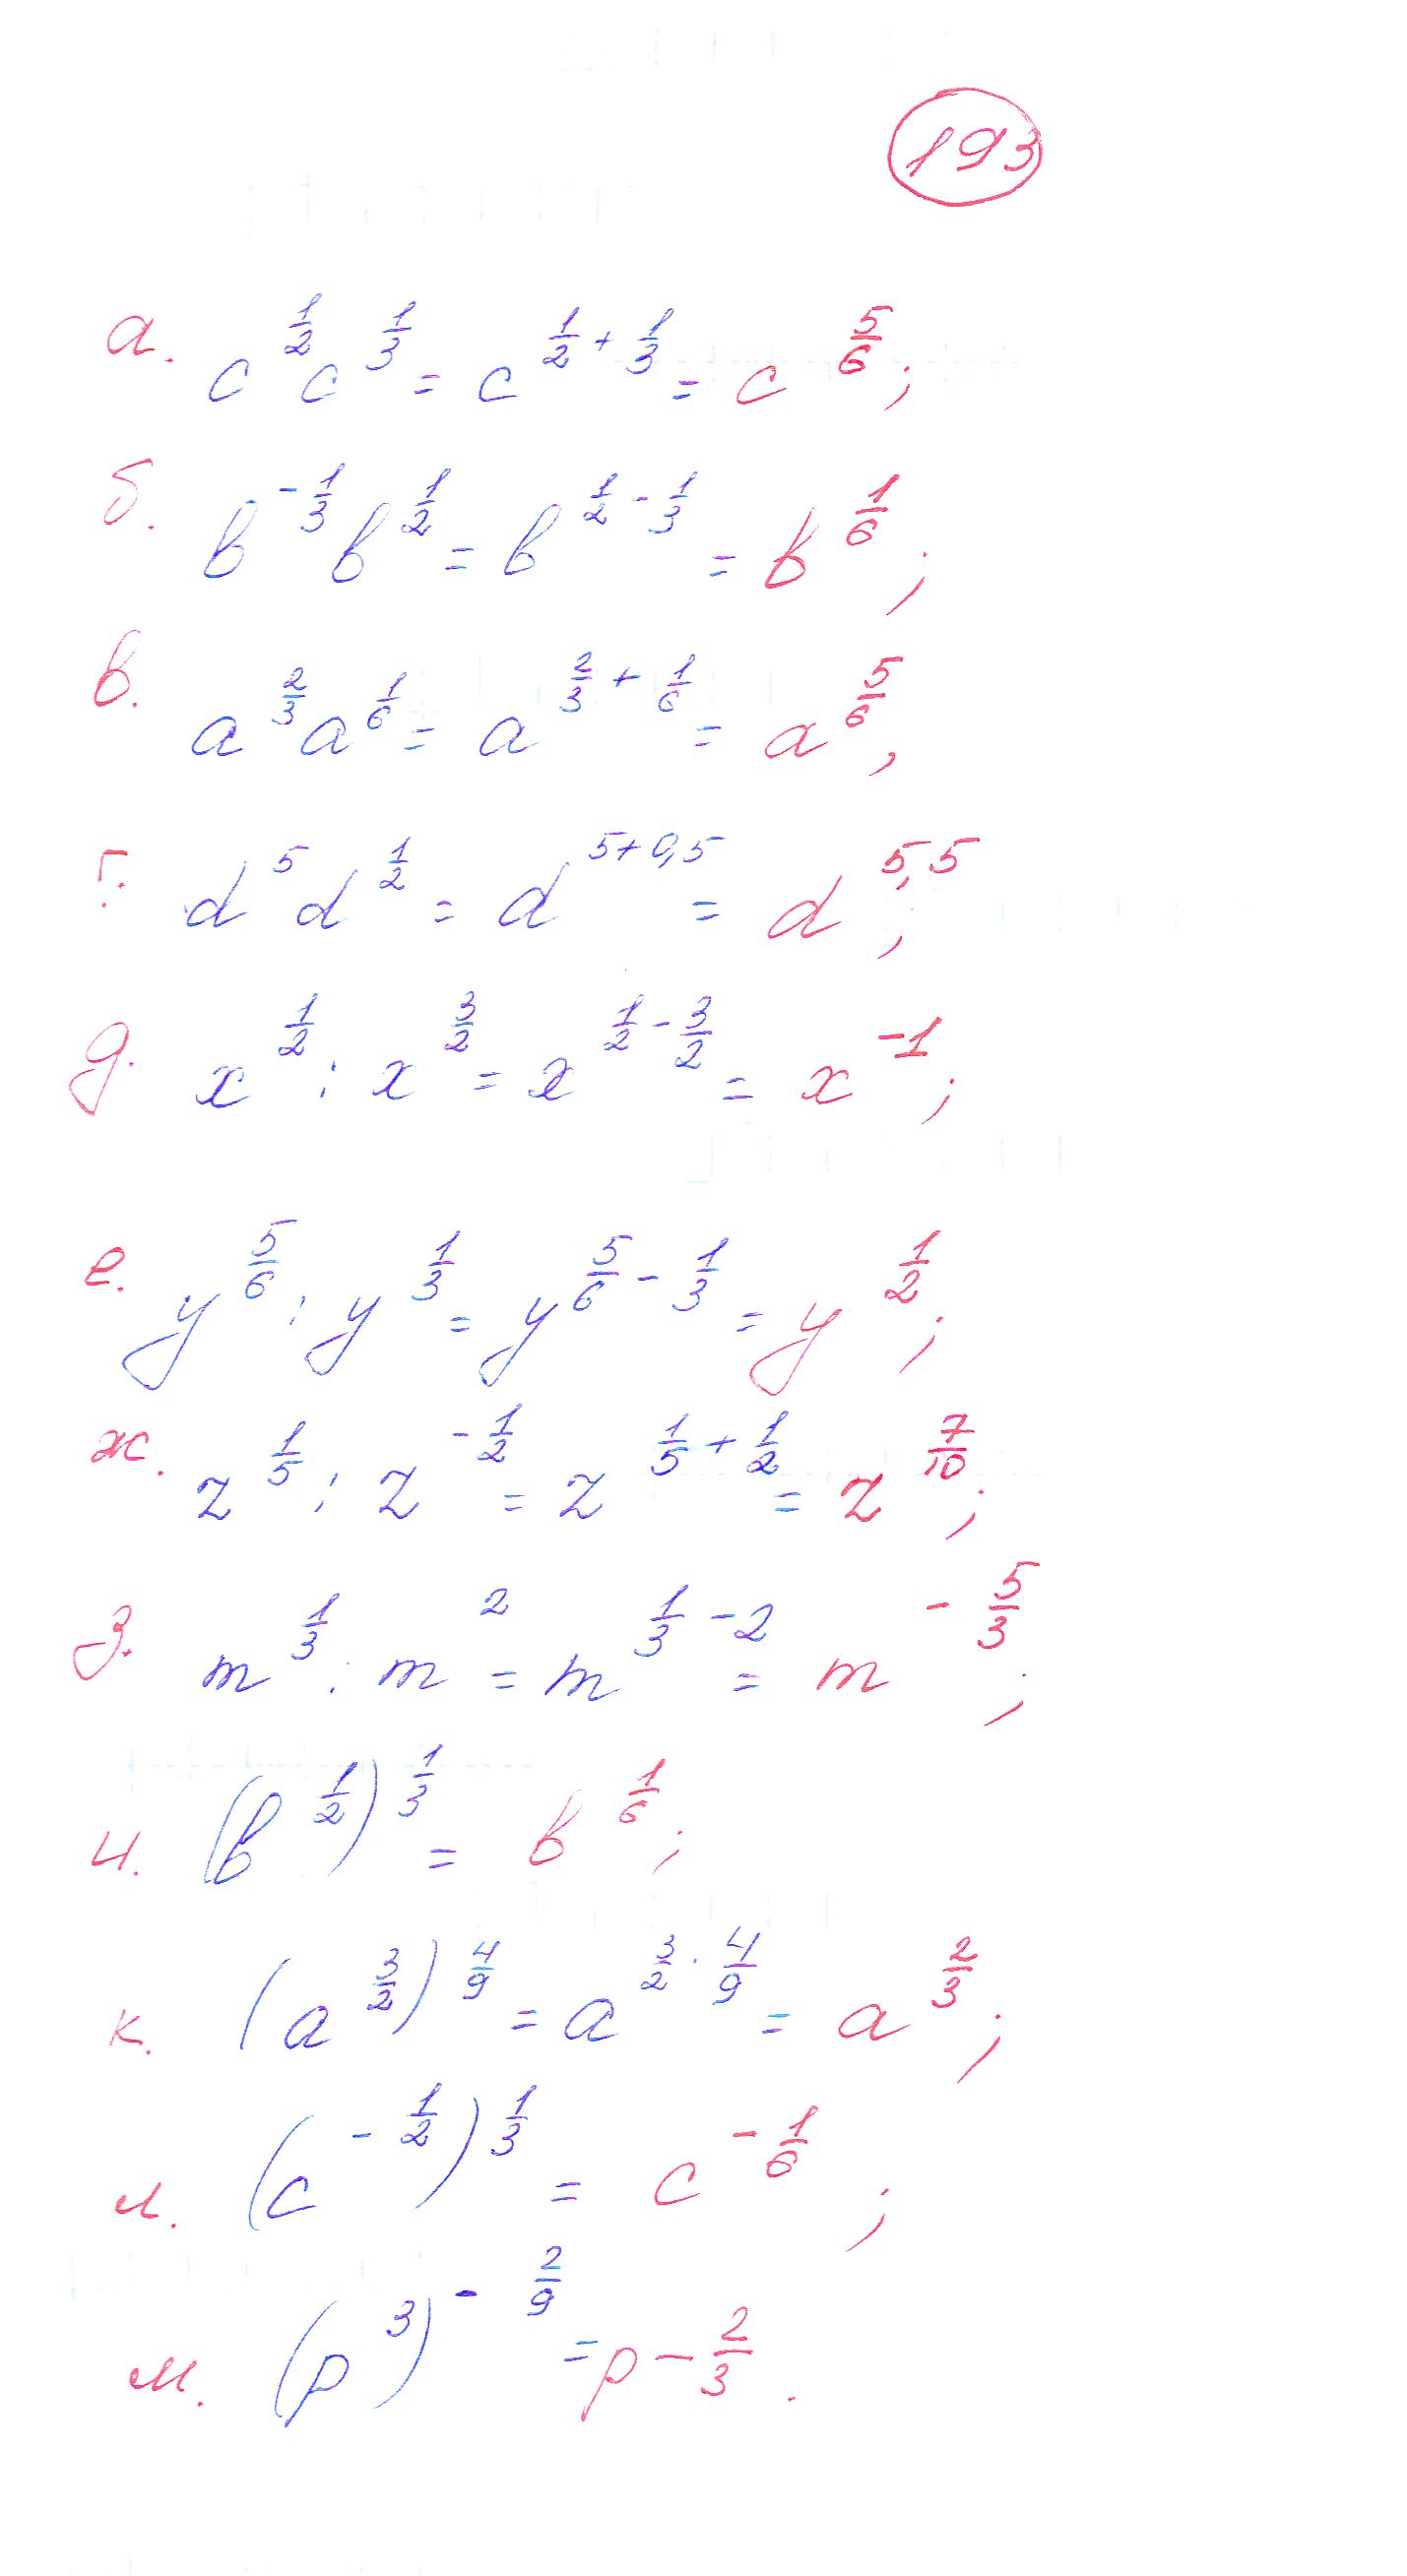 193
а. c^{1/2} c^{1/3} = c^{1/2 + 1/3} = c^{5/6};
б. b^{-1/3} b^{1/2} = b^{1/2 - 1/3} = b^{1/6};
в. a^{2/3} a^{1/6} = a^{2/3 + 1/6} = a^{5/6},
г. d^5 d^{1/2} = d^{5+0,5} = d^{5,5};
д. x^{1/2} : x^{3/2} = x^{1/2 - 3/2} = x^{-1};
е. y^{5/6} : y^{1/3} = y^{5/6 - 1/3} = y^{1/2};
ж. z^{1/5} : z^{-1/2} = z^{1/5 + 1/2} = z^{7/10};
з. m^{1/3} : m^2 = m^{1/3 - 2} = m^{-5/3};
и. (b^{1/2})^{1/3} = b^{1/6};
к. (a^{3/2})^{4/9} = a^{3/2 · 4/9} = a^{2/3};
л. (c^{-1/2})^{1/3} = c^{-1/6};
м. (p^3)^{-2/9} = p - 2/3.